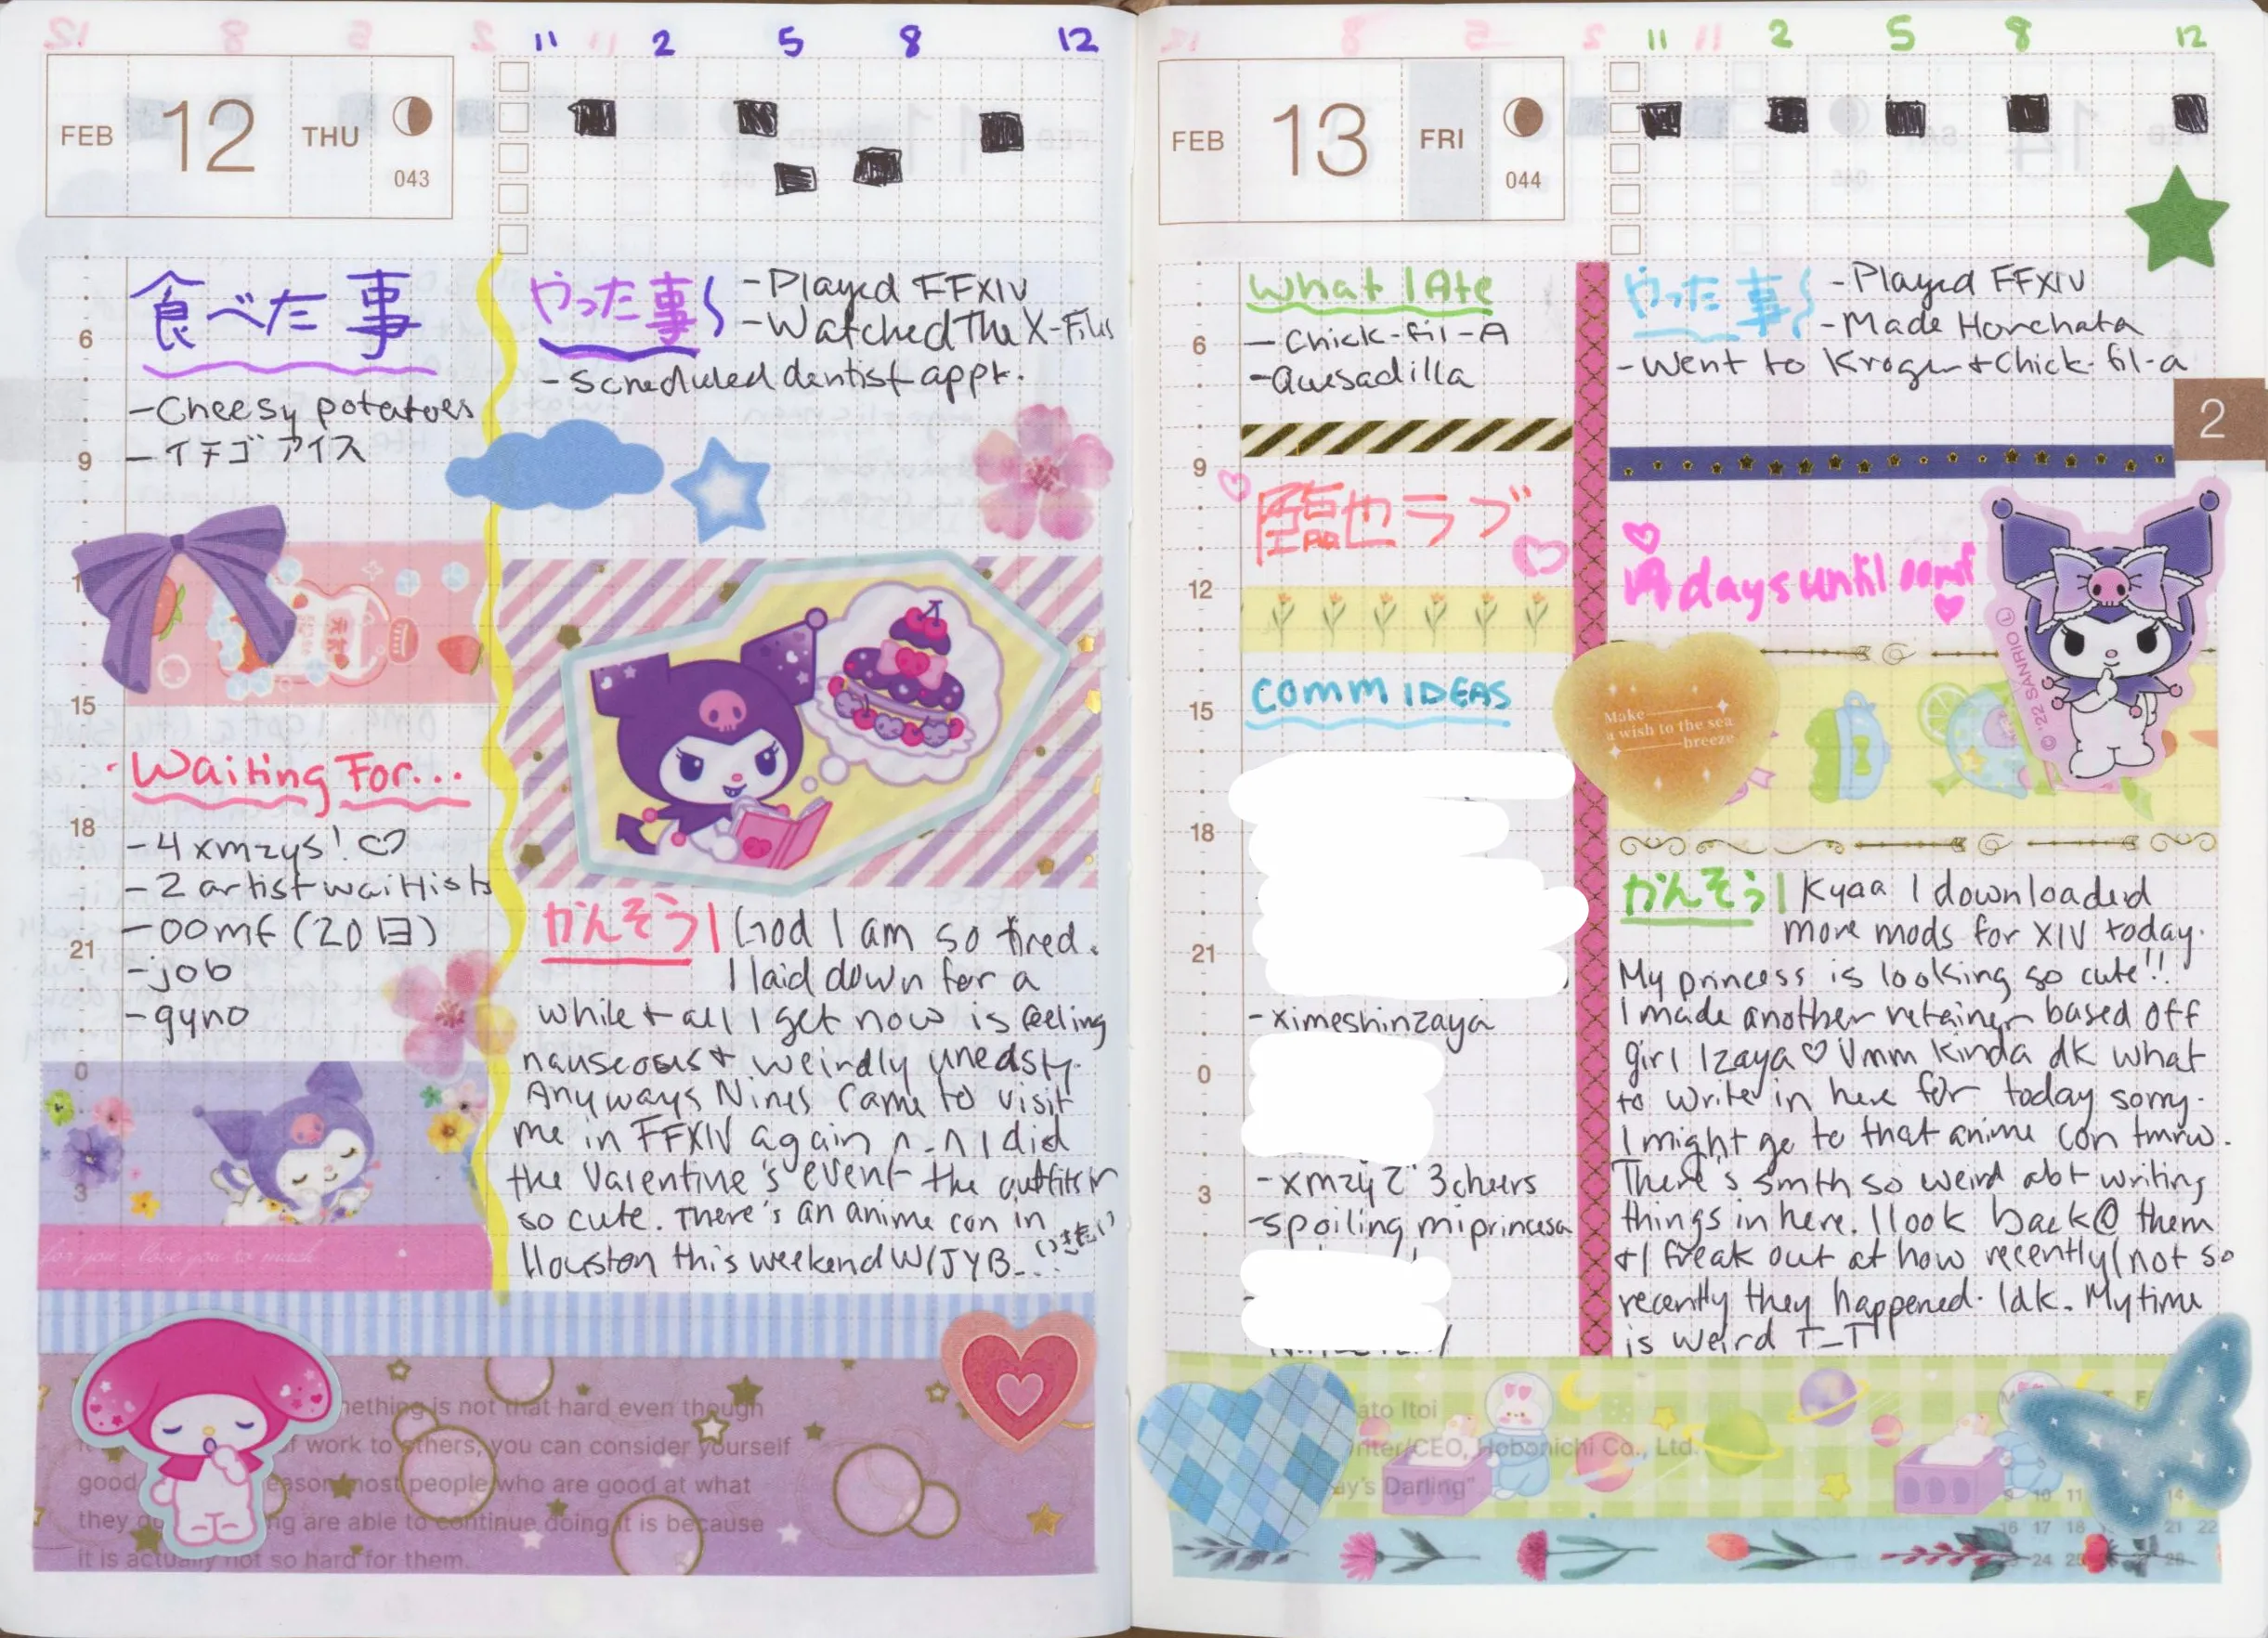 11 2 5 8 12
FEB 12 THU 043
食べた事
-Cheesy potatoes
-イチゴアイス
やった事
-Played FFXIV
-Watched The X-Files
-Scheduled dentist appt.
6
9
12
15
18
21
0
3
Waiting For...
-4 xmzys! ♡
-2 artist waitlists
-oomf (20日)
-job
-gyno
for you. love you so much
かんそう| God I am so tired.
I laid down for a
while + all I get now is feeling
nauseous + weirdly uneasy.
Anyways Nines came to visit
me in FFXIV again ^-^ I did
the Valentine's event the outfits r
so cute. There's an anime con in
Houston this weekend WIJYB...
mething is not that hard even though
work to others, you can consider yourself
good eason most people who are good at what
they ng are able to continue doing it is because
it is actually not so hard for them.
11 2 5 8 12
FEB 13 FRI 044
What I Ate
-Chick-fil-A
-Quesadilla
やった事
-Played FFXIV
-Made Horchata
-Went to Kroger + Chick-fil-a
2
6
9
12
15
18
21
0
3
臨也ラブ
days until oomf
COMM IDEAS
Make
a wish to the sea
breeze
© '22 SANRIO Ⓛ
-ximeshinzaya
-xmzy で 3cheers
-spoiling mi princesa
かんそう| Kyaa I downloaded
more mods for XIV today.
My princess is looking so cute!!
I made another retainer based off
girl Izaya ♡ Umm kinda dk what
to write in here for today sorry.
I might go to that anime con tmrw.
There's smth so weird abt writing
things in here. I look back @ them
+ I freak out at how recently/not so
recently they happened. Idk. My time
is weird T_T
ato Itoi
riter/CEO, Hobonichi Co., Ltd.
ay's Darling"